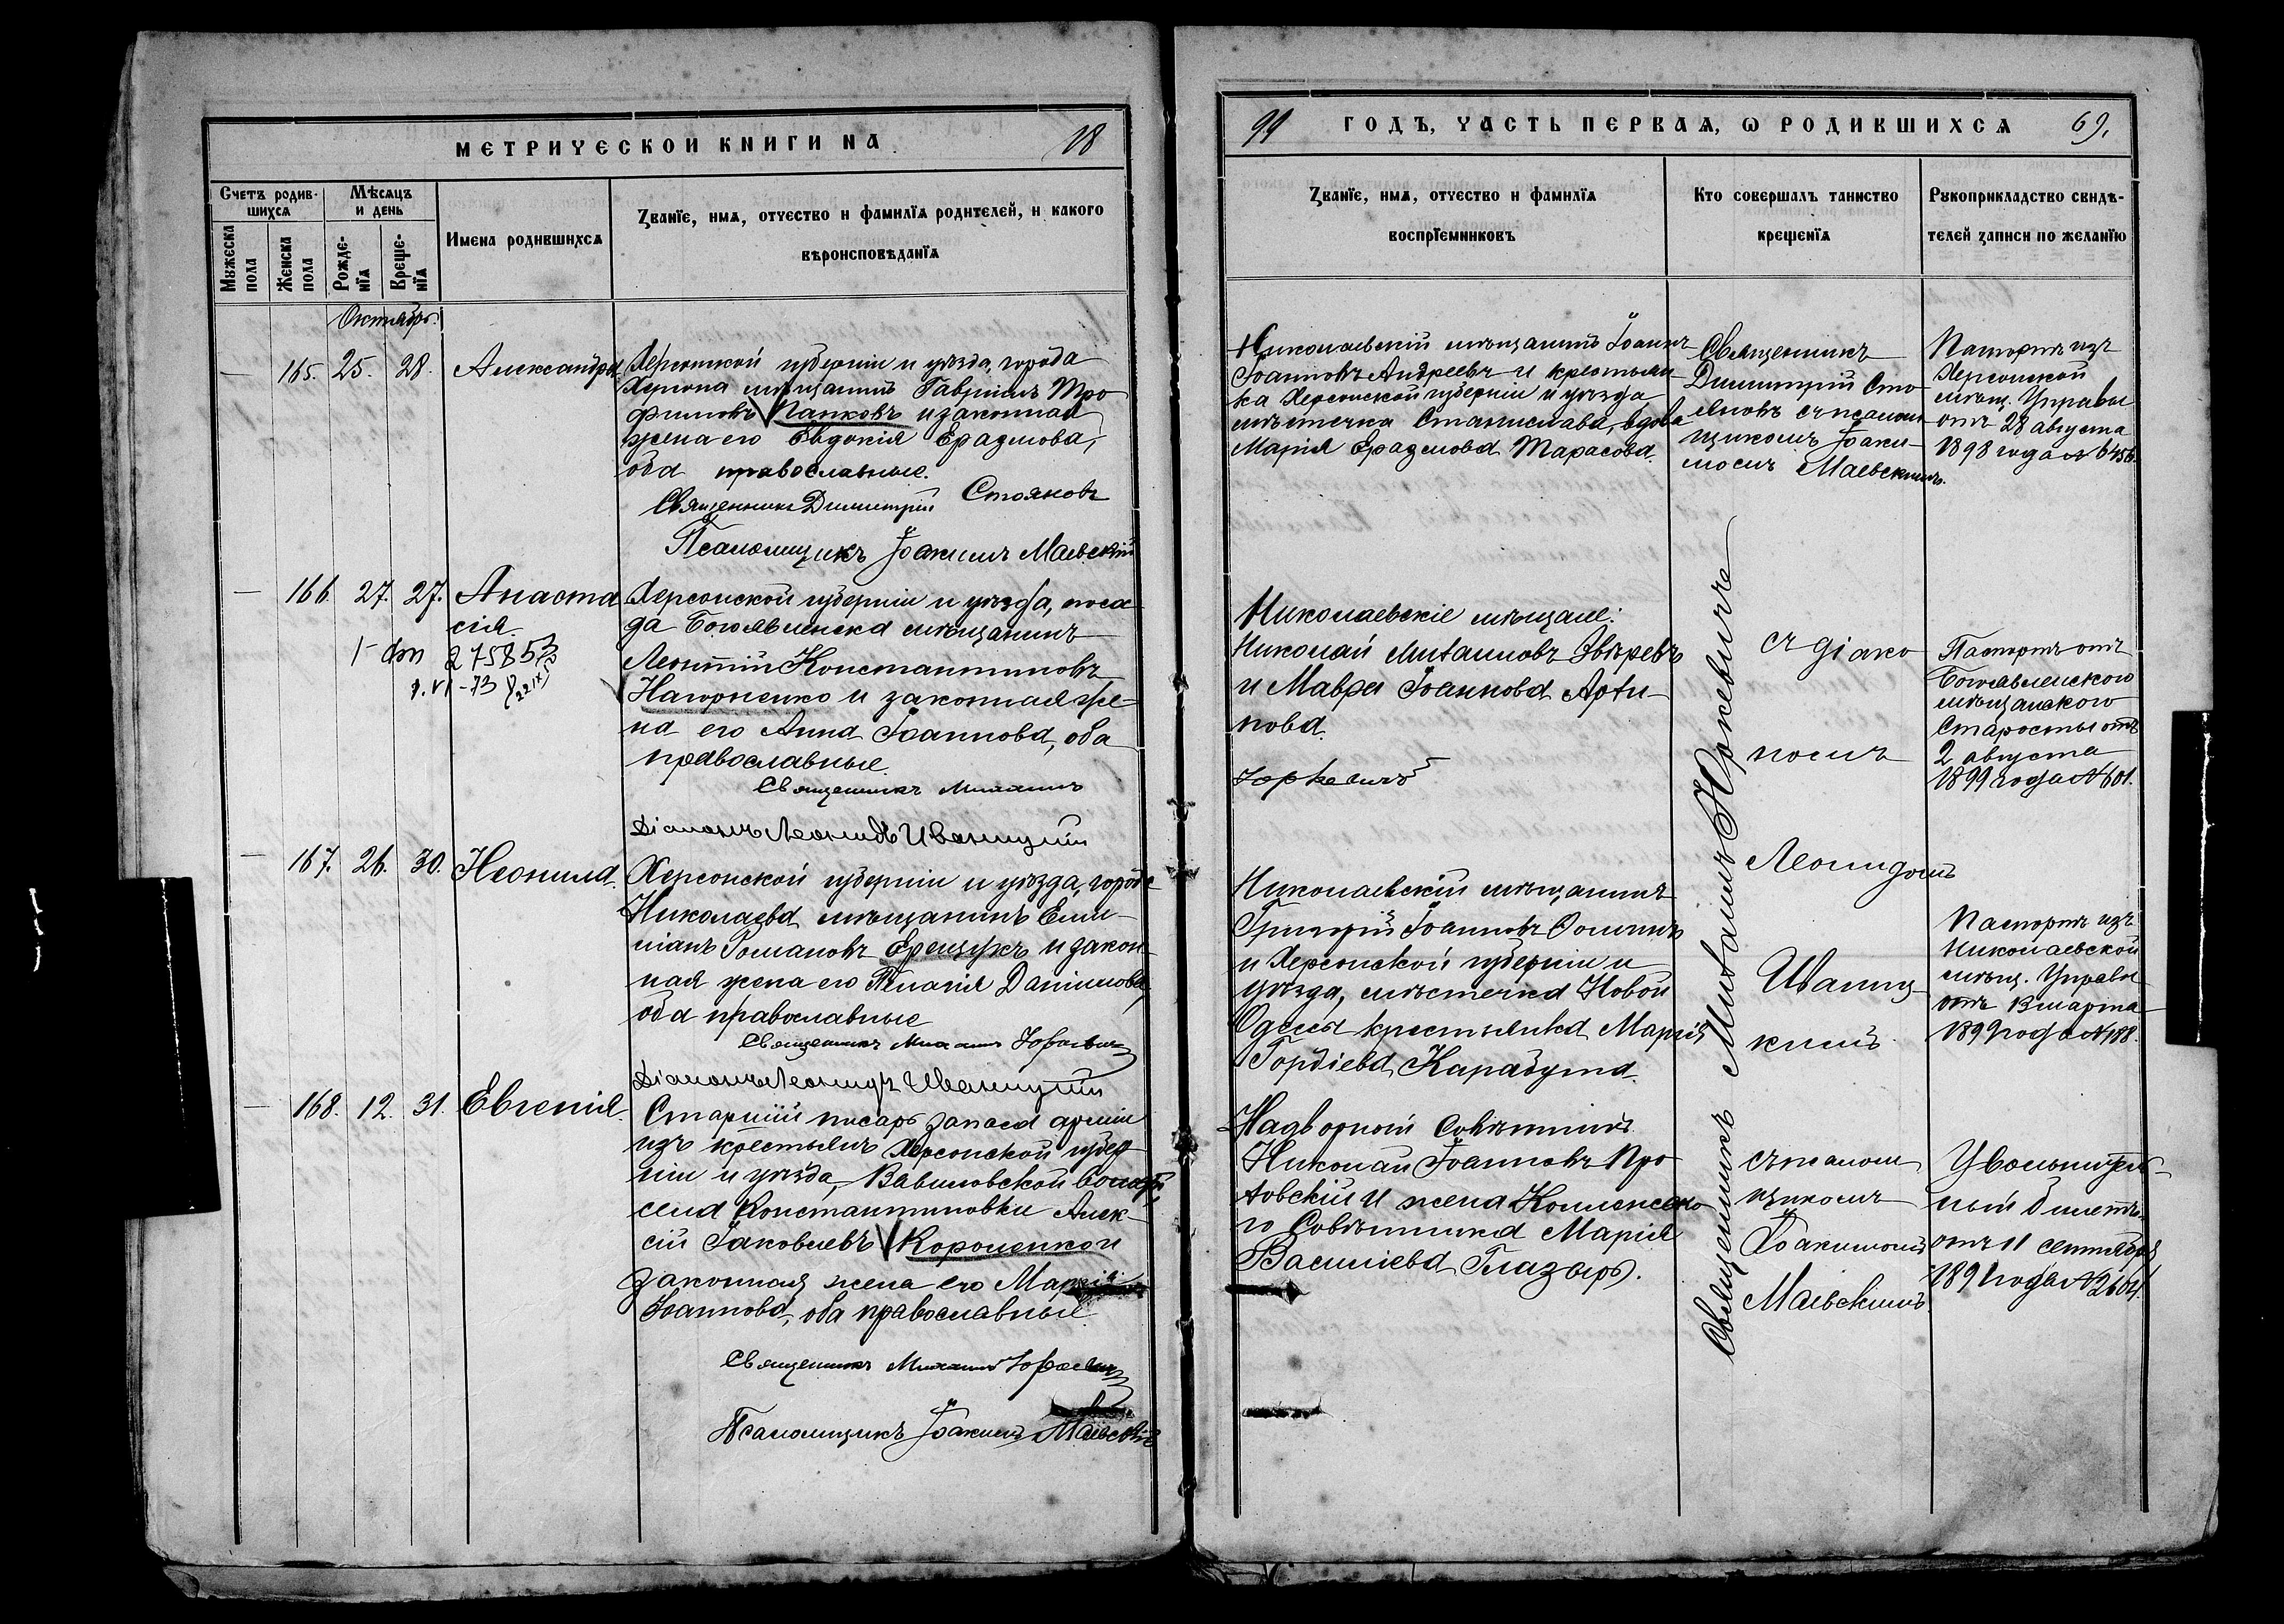 МЕТРИЧЕСКОЙ КНИГИ НА 18
Счетъ родив-
шихся
Мѣсяцъ
и день
Мужеска
пола
Женска
пола
Рожде-
нія
Креще-
нія
Имена родившихся
Званіе, имя, отчество и фамилія родителей, и какого
вѣроисповѣданія
Октябрь.
— 165. 25. 28. Александра
Херсонской губерніи и уѣзда, города
Херсона мѣщанинъ Гавріилъ Тро
фимовъ Папковъ и законная
жена его Евдокія Еразмова,
оба православные.
Священникъ Димитрій Стояновъ
Псаломщикъ Іоакимъ Маевскій
— 166. 27. 27. Анаста
сія.
275853
Херсонской губерніи и уѣзда, поса-
да Богоявленска мѣщанинъ
Леонтій Константиновъ
Нагорненко и законная же-
на его Анна Іоаннова, оба
православные.
Священникъ Михаилъ
Діаконъ Леонидъ Иваницкій
— 167. 26. 30. Неонила.
Херсонской губерніи и уѣзда, города
Николаева мѣщанинъ Емили-
ianъ Романовъ Ерещукъ и закон-
ная жена его Пелагія Даніилова,
оба православные
Священникъ Михаилъ Юркевичъ
Діаконъ Леонидъ Иваницкій
— 168. 12. 31. Евгенія.
Старшій писарь запаса арміи
изъ крестьянъ Херсонской губер
ніи и уѣзда, Вавиловской волости,
села Константиновки Алек-
сій Іаковлевъ Короленко и
законная жена его Марія
Іоаннова, оба православные.
Священникъ Михаилъ Юркевичъ
Псаломщикъ Іоакимъ Маевскій
99 ГОДЪ, ЧАСТЬ ПЕРВАЯ, О РОДИВШИХСЯ 69.
Званіе, имя, отчество и фамилія
воспріемниковъ
Кто совершалъ таинство
крещенія
Рукоприкладство свидѣ-
телей записи по желанію
Николаевскій мѣщанинъ Іоаннъ
Іоанновъ Андреевъ и крестьян
ка Херсонской губерніи и уѣзда
мѣстечка Станислава, вдова
Марія Еразмова Тарасова.
Священникъ
Димитрій Сто-
яновъ съ псалом
щикомъ Іоаки-
момъ Маевскимъ.
Паспортъ изъ
Херсонской
мѣщ. Управы
отъ 28 августа
1898 года № 6456.
Николаевскіе мѣщане:
Николай Михаиловъ Звѣревъ
и Мавра Іоаннова Архи-
пова.
Юркевичъ
Паспортъ отъ
Богоявленского
мѣщанского
Старосты отъ
2 августа
1899 года № 601.
Николаевскій мѣщанинъ
Григорій Іоанновъ Фоминъ
и Херсонской губерніи и
уѣзда, мѣстечка Новой
Одессы крестьянка Марія
Гордіева Карабута.
Паспортъ изъ
Николаевской
мѣщ. Управы
отъ 13 марта
1899 года № 188.
Надворный Совѣтникъ
Николай Іоанновъ Про
товскій и жена Коллежско
го Совѣтника Марія
Васильева Глазырь.
Священникъ Михаилъ Юркевичъ
съ діако
номъ
Леонидомъ
Иваниц-
кимъ.
съ псалом
щикомъ
Іоакимомъ
Маевскимъ.
Увольнитель-
ный билетъ
отъ 11 сентября
1891 года № 2604.